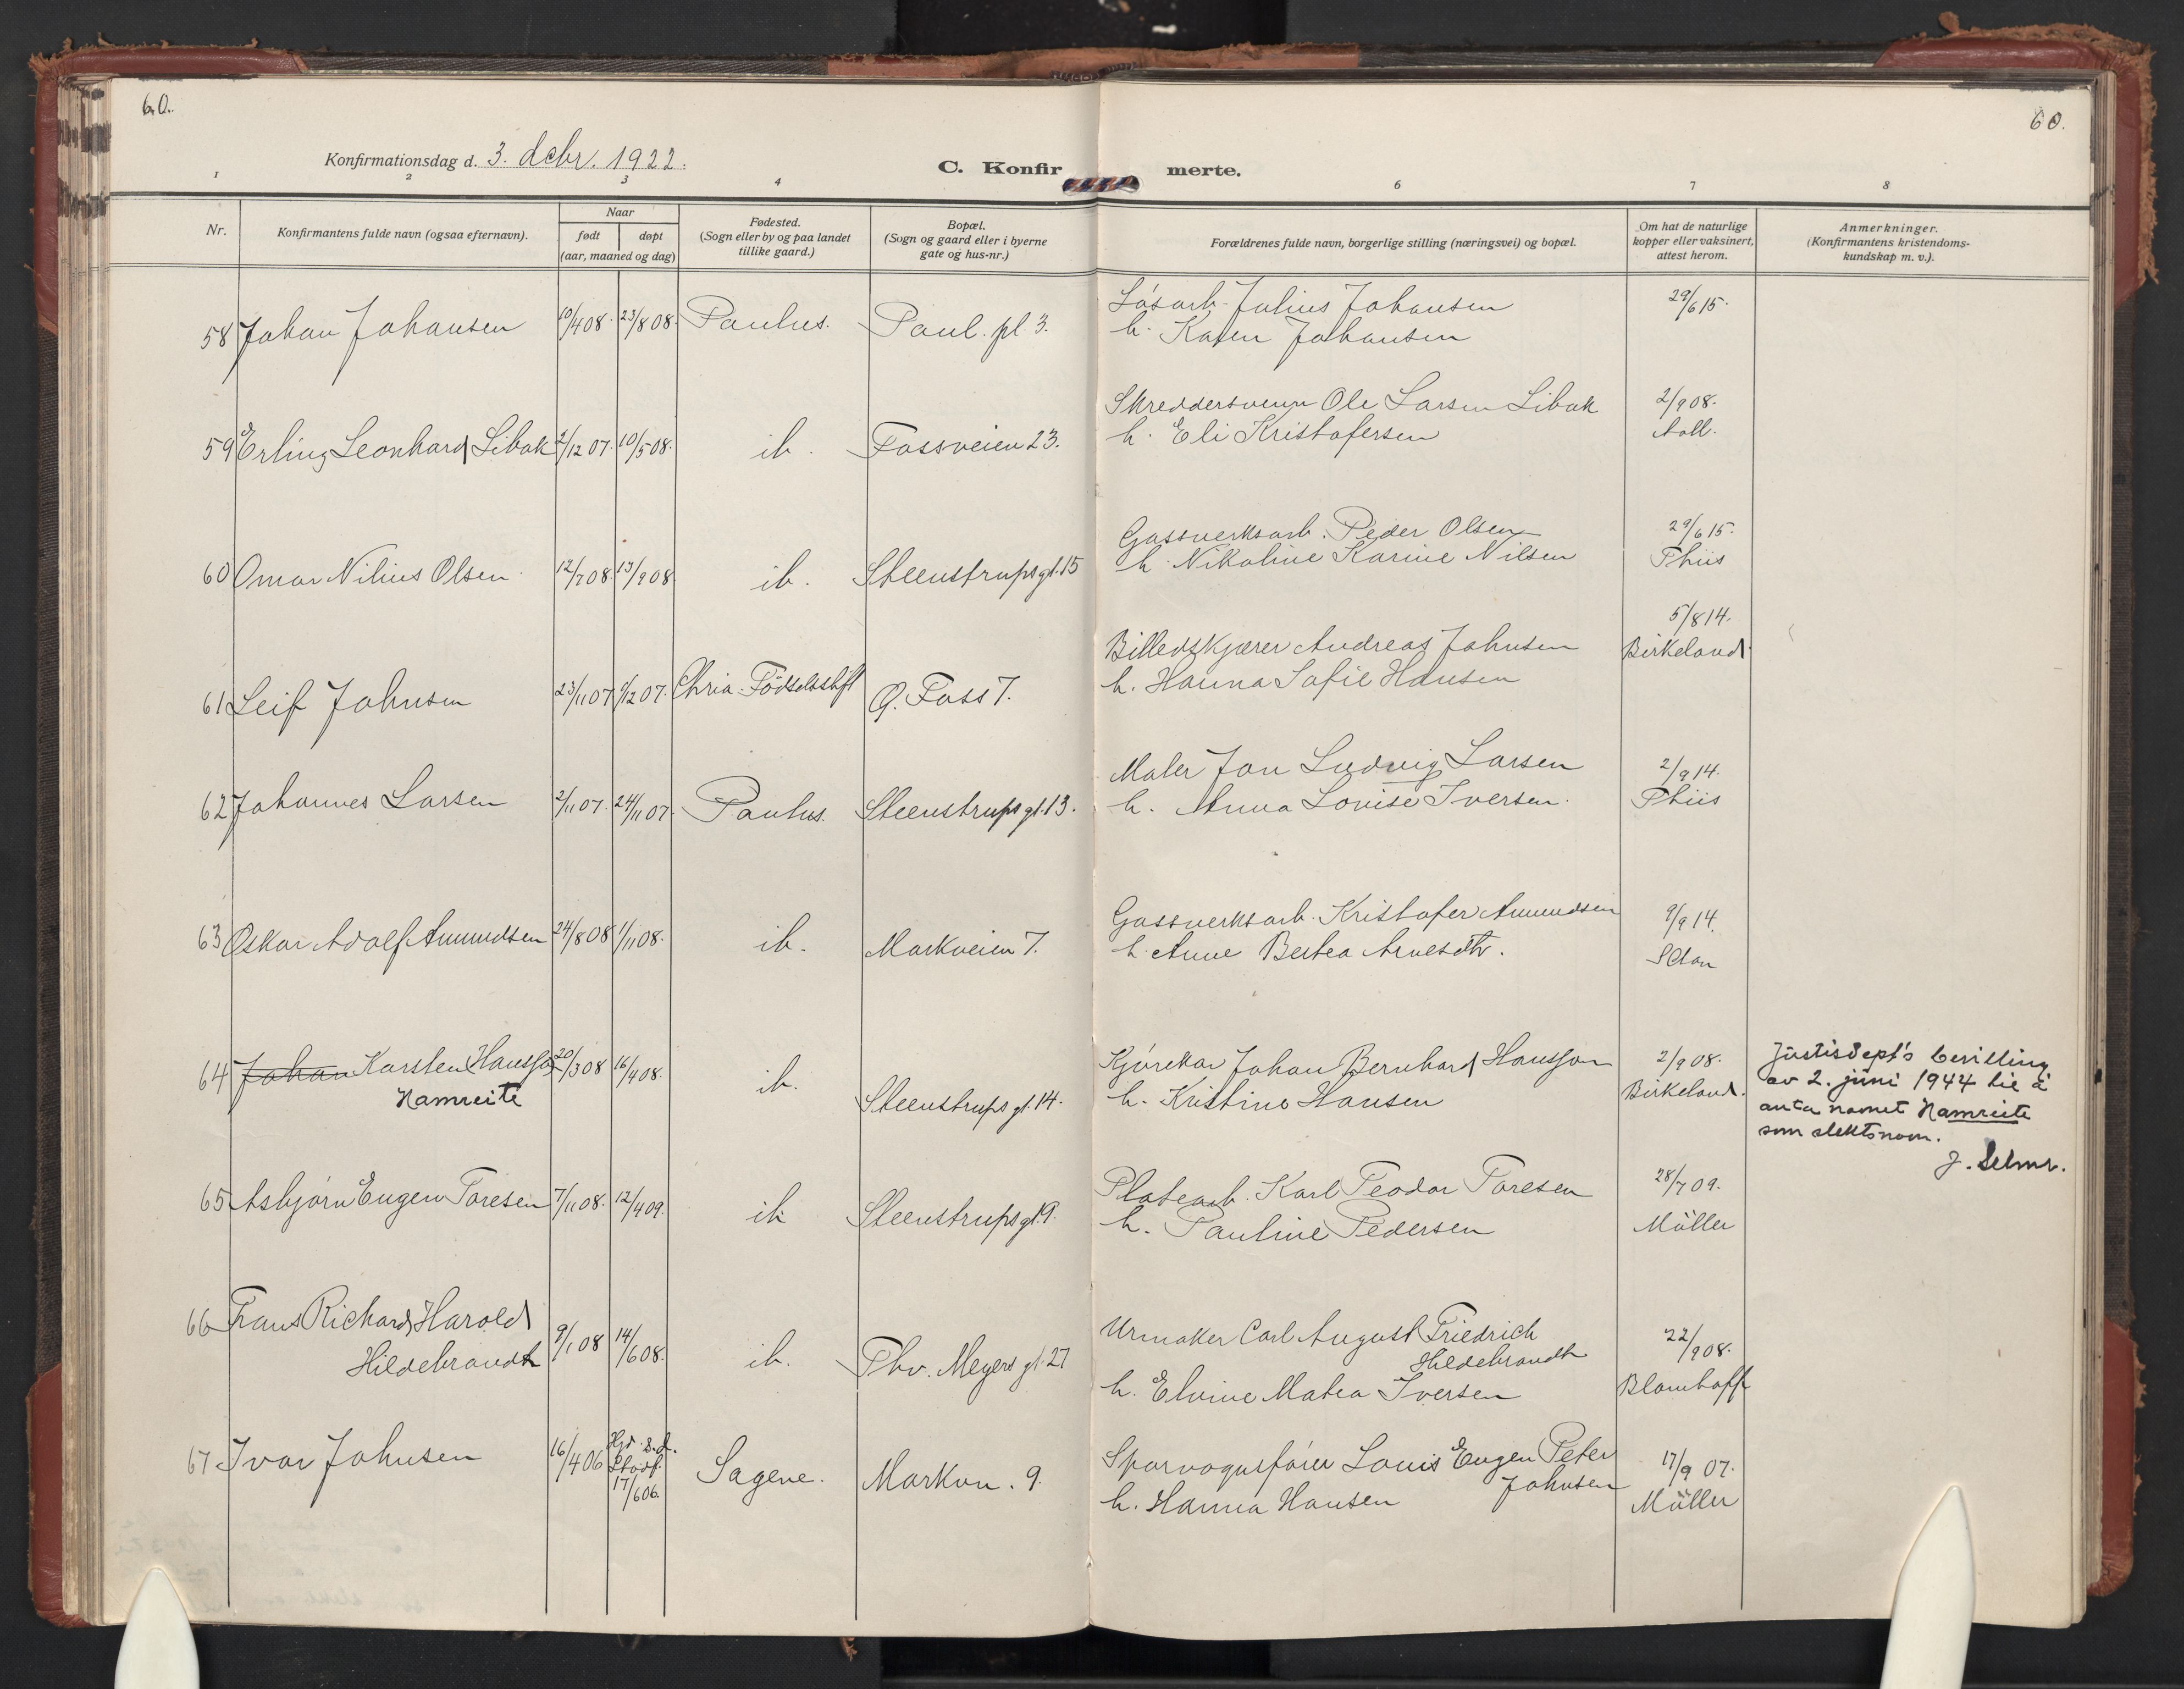 60.
60.
Konfirmationsdag d. 3. debr. 1922.
C. Konfirmerte.
1 2 3 4 6 7 8
Nr.
Konfirmantens fulde navn (ogsaa efternavn).
Naar
født døpt
(aar, maaned og dag)
Fødested.
(Sogn eller by og paa landet
tillike gaard.)
Bopæl.
(Sogn og gaard eller i byerne
gate og hus-nr.)
Forældrenes fulde navn, borgerlige stilling (næringsvei) og bopæl.
Om hat de naturlige
kopper eller vaksinert,
attest herom.
Anmerkninger.
(Konfirmantens kristendoms-
kundskap m. v.).
58 Johan Johansen 10/4 08. 23/8 08. Paulus. Paul. pl. 3.
Løsarb. Julius Johansen
h. Karen Johansen
29/6 15.
59 Erling Leonhard Libak 2/12 07. 10/5 08. ib. Fossveien 23.
Skreddersvenn Ole Larsen Libak
h. Eli Kristofersen
2/9 08.
60 Omar Nilius Olsen. 12/7 08. 13/9 08 ib. Steenstrups gt. 15
Gassverksarb. Peder Olsen
h. Nikoline Karine Nilsen
29/6 15.
Thiis
61 Leif Johnsen 23/11 07 1/12 07. Chria. Födselsstift O. Foss 7.
Billedskjærer Andreas Johnsen
h. Hanna Sofie Hansen
5/8 14.
Birkeland.
62 Johannes Larsen 2/11 07. 24/11 07. Paulus. Steenstrups gt. 13.
Maler Jon Ludvig Larsen
h. Anna Lovise Iversen.
2/9 14.
Thiis
63 Oskar Adolf Amundsen 24/8 08 1/11 08. ib. Markveien 7.
Gassverksarb. Kristofer Amundsen
h. Anne Bertea Arnesdtr.
9/9 14.
64 Johan Karsten Hansson 20/3 08 16/4 08. ib. Steenstrups gt. 14.
Hamreite
Kjørekar Johan Bernhard Hansson
h. Kristine Hansen
2/9 08.
Birkeland.
Justisdept's bevilling
av 2. juni 1944 til å
anta navnet Hamreite
som slektsnavn.
J. Selmer.
65 Asbjørn Eugen Toresen 7/11 08. 12/4 09. ib Steenstrups gt. 9.
Platearb. Karl Teodor Toresen
h. Pauline Pedersen
28/7 09.
Möller
66 Frans Richard Harold
Hildebrandt 9/1 08 14/6 08. ib. Thv. Meyers gt. 27
Urmaker Carl August Friedrich
Hildebrandt
h. Elvine Matea Iversen
22/9 08.
Blomhoff
67 Ivar Johnsen 16/4 06 Hjd. s. d.
Stadf.
17/6 06. Sagene. Markvn. 9.
Sporvognsfører Louis Eugen Peter
Johnsen
h. Hanna Hansen
17/9 07.
Möller